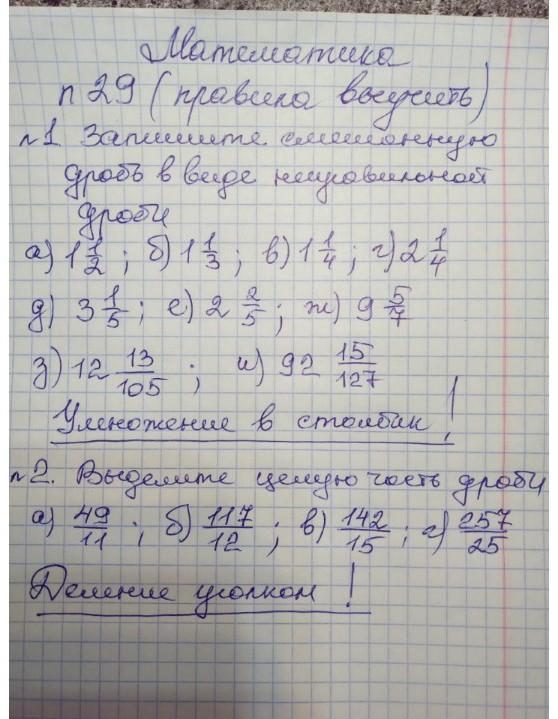 Математика
п 29 (правила выучить)
№1 Запишите смешанную
дробь в виде неправильной
дроби
а) 1 1/2 ; б) 1 1/3 ; в) 1 1/4 ; г) 2 1/4
д) 3 1/5 ; е) 2 2/5 ; ж) 9 5/7
з) 12 13/105 ; и) 92 15/127
Умножение в столбик !
№2. Выделите целую часть дроби
а) 49/11 ; б) 117/12 ; в) 142/15 ; г) 257/25
Деление уголком !